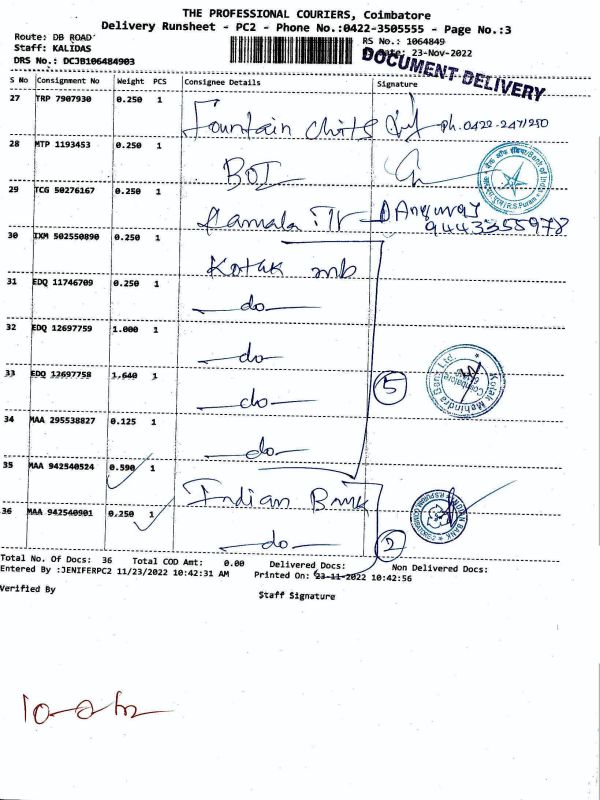 THE PROFESSIONAL COURIERS, Coimbatore
Delivery Runsheet - PC2 - Phone No.:0422-3505555 - Page No.:3
Route: DB ROAD
RS No.: 1064849
Staff: KALIDAS
Date: 23-Nov-2022
DRS No.: DCJB106484903
DOCUMENT DELIVERY
S No Consignment No Weight PCS Consignee Details Signature
27 TRP 7907930 0.250 1 Fountain chits ph.0422-2471250
28 MTP 1193453 0.250 1 BOI
Bank of India
R.S.Puram
29 TCG 50276167 0.250 1 Kamala
9443355978
30 IXM 502550890 0.250 1 Kotak mb
31 EDQ 11746709 0.250 1 do
32 EDQ 12697759 1.000 1 do
33 EDQ 13697758 1.640 1 do 5
Kotak Mahindra Bank Ltd.
Coimbatore
34 MAA 295538827 0.125 1 do
35 MAA 942540524 0.590 1 Indian Bank
36 MAA 942540901 0.250 1 do 2
INDIAN BANK
R S PURAM COIMBATORE-2
Total No. Of Docs: 36 Total COD Amt: 0.00 Delivered Docs: Non Delivered Docs:
Entered By :JENIFERPC2 11/23/2022 10:42:31 AM Printed On: 23-11-2022 10:42:56
Verified By
Staff Signature